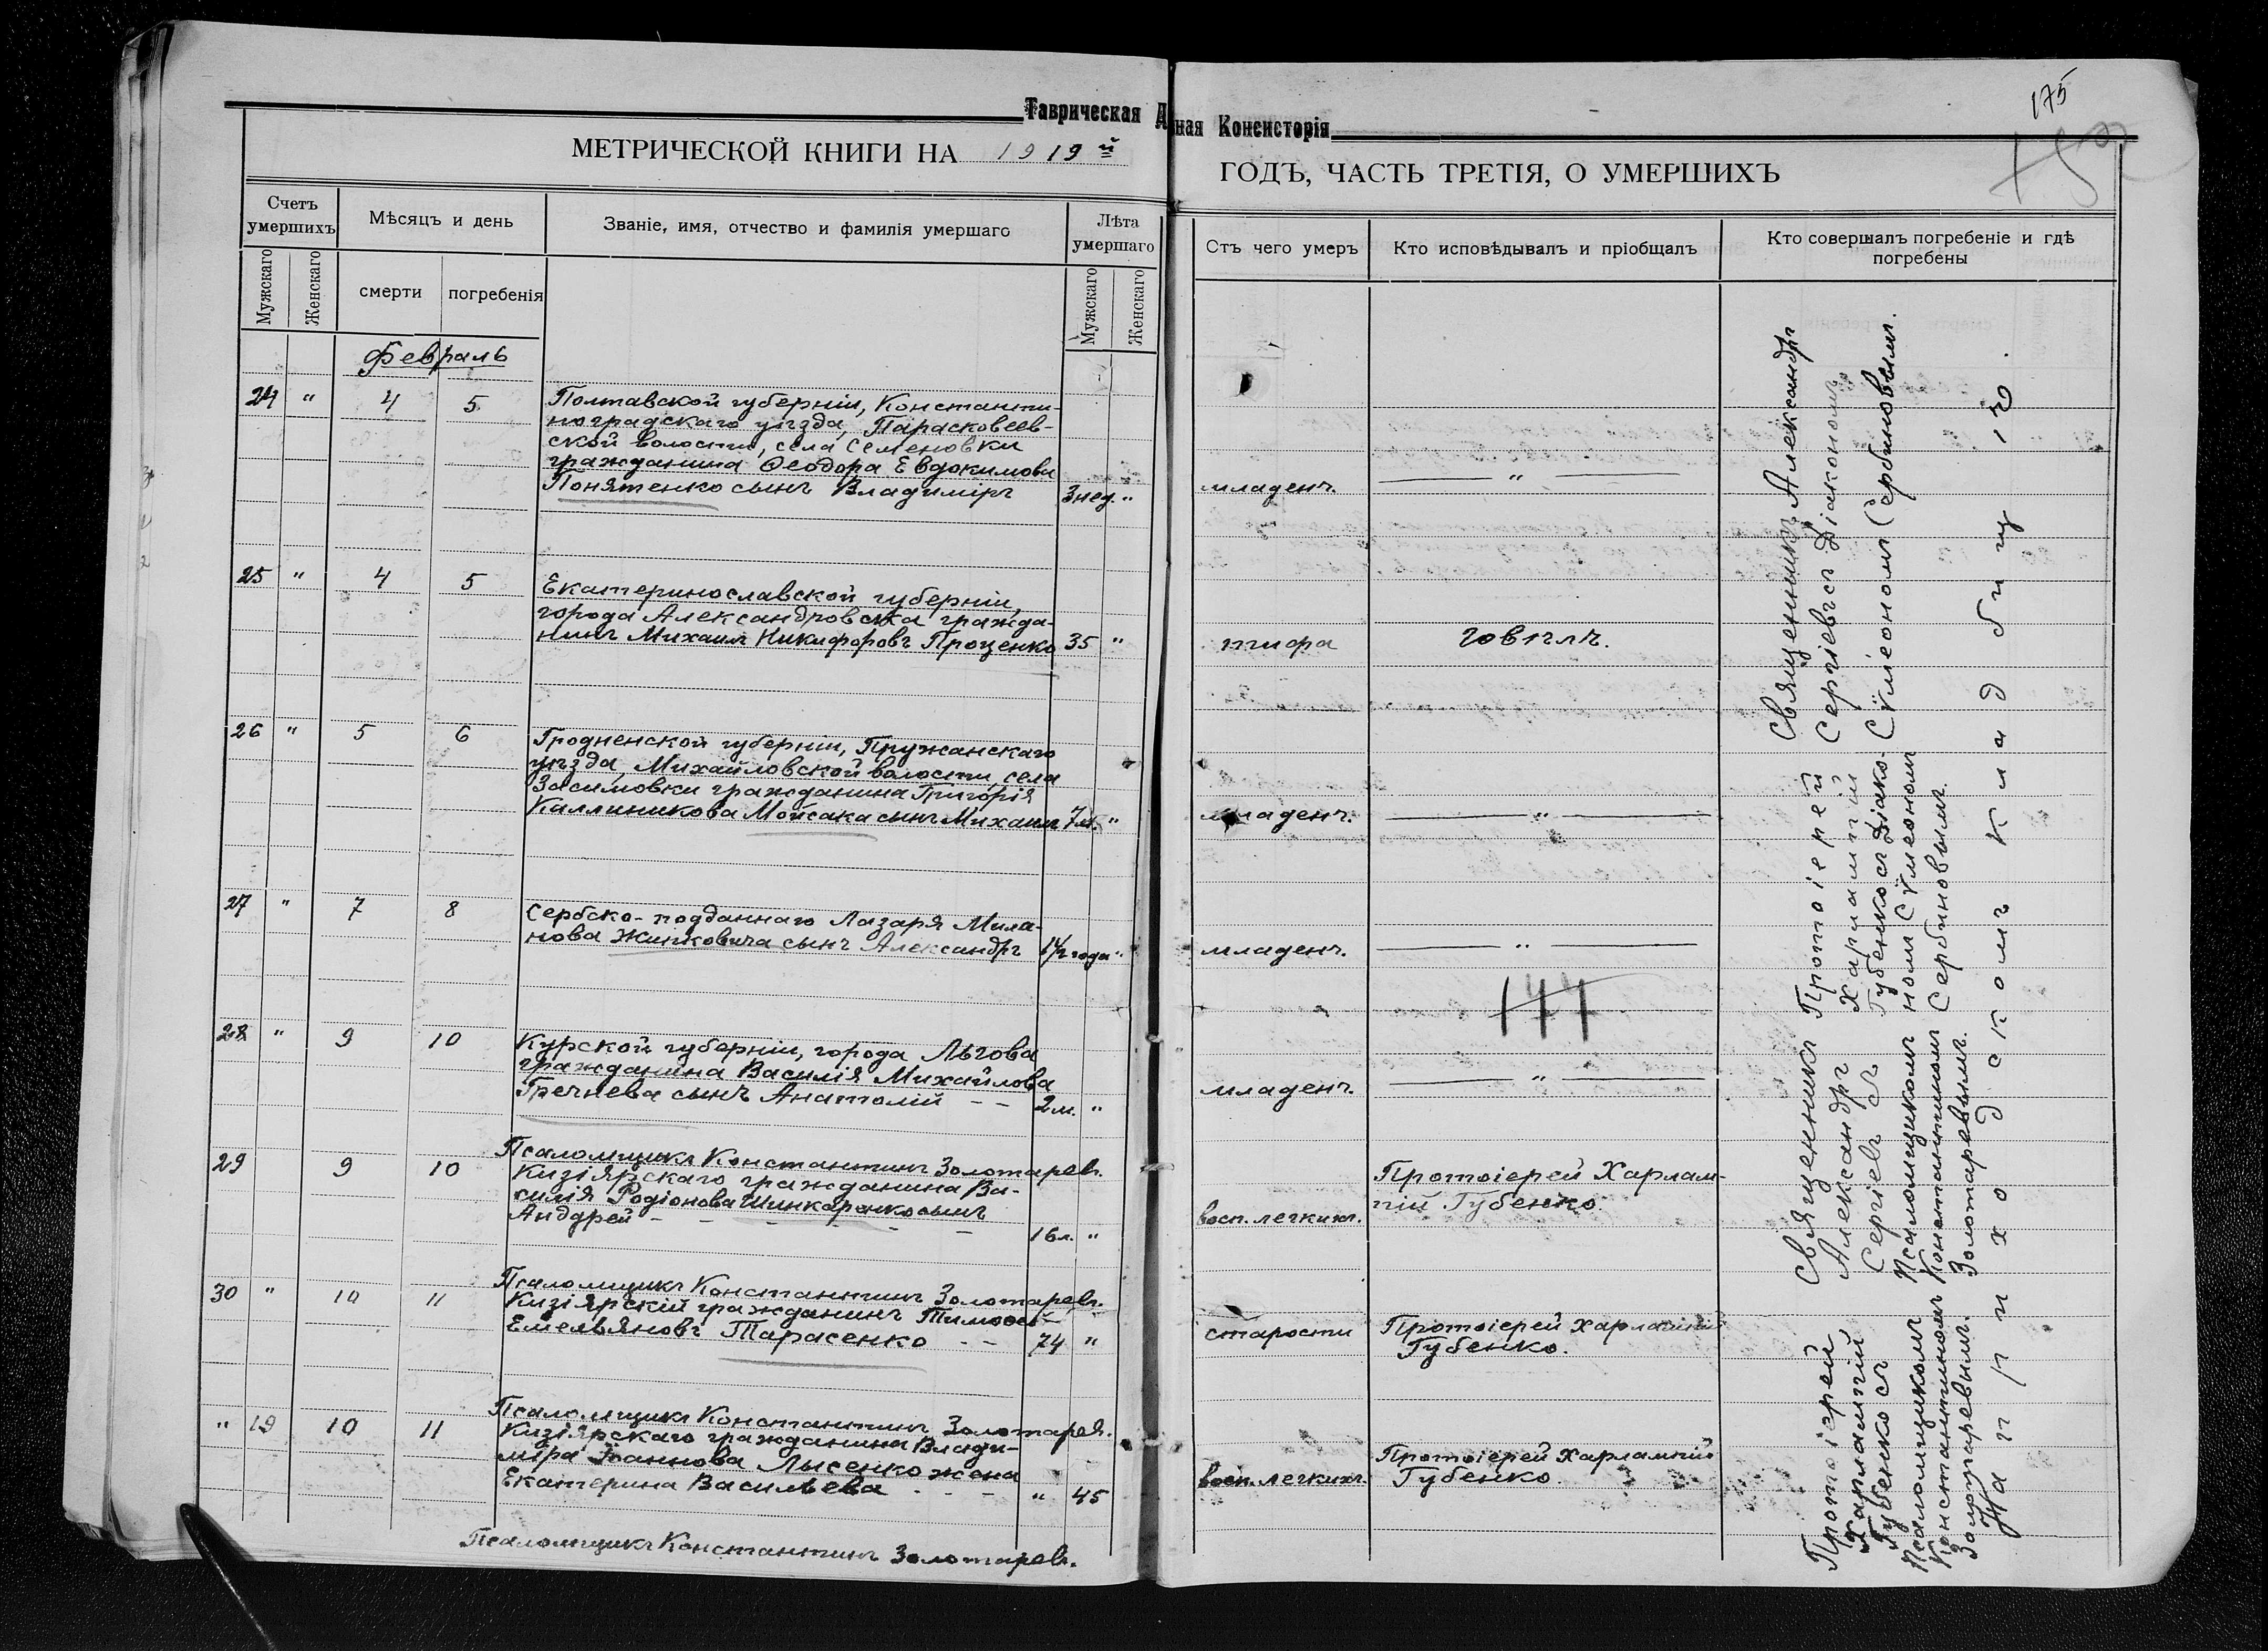 175
Таврическая Д
ная Консисторія
МЕТРИЧЕСКОЙ КНИГИ НА 1919й
ГОДЪ, ЧАСТЬ ТРЕТІЯ, О УМЕРШИХЪ
Счетъ умершихъ
Мѣсяцъ и день
Званіе, имя, отчество и фамилія умершаго
Лѣта умершаго
Мужскаго
Женскаго
смерти
погребенія
Мужскаго
Женскаго
Отъ чего умеръ
Кто исповѣдывалъ и пріобщалъ
Кто совершалъ погребеніе и гдѣ
погребены
Февраль
24 " 4 5
Полтавской губерніи, Константи-
ноградскаго уѣзда, Парасковеев-
ской волости, села Семеновки
гражданина Ѳеодора Евдокимова
Понятенко сынъ Владиміръ 3 нед. "
младенч. "
25 " 4 5
Екатеринославской губерніи,
города Александровска гражда-
нинъ Михаилъ Никифоровъ Проценко 35 "
тифа говѣлъ.
26 " 5 6
Гродненской губерніи, Пружанскаго
уѣзда, Михайловской волости, села
Засимовки гражданина Григорія
Каллиникова Мойсака сынъ Михаилъ 7 м. "
младенч. "
27 " 7 8
Сербско-подданнаго Лазаря Мила-
нова Живковича сынъ Александръ 1½ года "
младенч. "
144
28 " 9 10
Курской губерніи, города Льгова
гражданина Василія Михайлова
Гречнева сынъ Анатолій - - 2 м. "
младенч. "
Псаломщикъ Константинъ Золотаревъ.
29 9 10
Кизіярскаго гражданина Ва-
силія Родіонова Шинкаренко сынъ
Андрей - - - - - 16 л. "
восп. легкихъ.
Протоіерей Харлам-
пій Губенко.
Псаломщикъ Константинъ Золотаревъ.
30 " 10 11
Кизіярскій гражданинъ Тимоѳей
Емельяновъ Тарасенко - - 74 "
старости
Протоіерей Харлампій
Губенко.
Псаломщикъ Константинъ Золотаревъ.
" 19 10 11
Кизіярскаго гражданина Влади-
міра Іоаннова Лысенко жена
Екатерина Васильева - - - " 45
восп. легкихъ.
Протоіерей Харлампій
Губенко.
Псаломщикъ Константинъ Золотаревъ.
Священникъ Александръ
Сергіевъ съ Діакономъ
Сѵмеономъ Сербиновымъ.
Протоіерей
Харлампій
Губенко съ Діако-
номъ Сѵмеономъ
Сербиновымъ.
Священникъ
Александръ
Сергіевъ съ
Псаломщикомъ
Константиномъ
Золотаревымъ.
Протоіерей
Харлампій
Губенко съ
Псаломщикомъ
Константиномъ
Золотаревымъ.
На приходскомъ кладбищѣ.